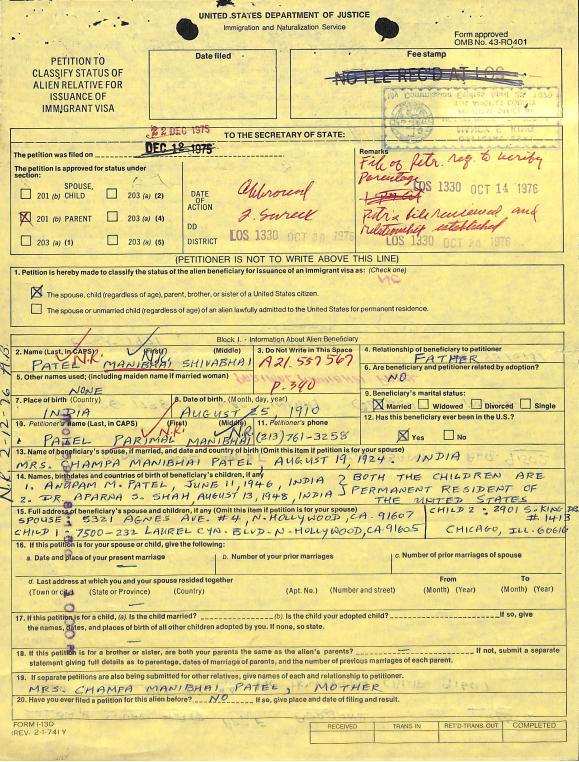 UNITED STATES DEPARTMENT OF JUSTICE
Immigration and Naturalization Service
Form approved
OMB No. 43-RO401
PETITION TO
CLASSIFY STATUS OF
ALIEN RELATIVE FOR
ISSUANCE OF
IMMIGRANT VISA
Date filed
Fee stamp
NO FEE REC'D AT LOS
TO THE SECRETARY OF STATE:
22 DEC 1975
The petition was filed on
DEC 12 1975
The petition is approved for status under section:
SPOUSE,
201 (b) CHILD
203 (a) (2)
201 (b) PARENT
203 (a) (4)
203 (a) (1)
203 (a) (5)
DATE
OF
ACTION
DD
DISTRICT
Approved
LOS 1330 OCT 20 1976
Remarks
File of Petr. req. to verify
Parentage
LOS 1330 OCT 14 1976
Petr's file reviewed and
relationship established
LOS 1330 OCT 20 1976
(PETITIONER IS NOT TO WRITE ABOVE THIS LINE)
1. Petition is hereby made to classify the status of the alien beneficiary for issuance of an immigrant visa as: (Check one)
X The spouse, child (regardless of age), parent, brother, or sister of a United States citizen.
The spouse or unmarried child (regardless of age) of an alien lawfully admitted to the United States for permanent residence.
Block I. - Information About Alien Beneficiary
2. Name (Last, in CAPS) (First) (Middle)
N.R. N.R.
PATEL MANIBHAI SHIVABHAI
3. Do Not Write in This Space
A21 537 567
P-390
4. Relationship of beneficiary to petitioner
FATHER
5. Other names used; (including maiden name if married woman)
NONE
6. Are beneficiary and petitioner related by adoption?
NO
7. Place of birth (Country)
INDIA
8. Date of birth. (Month, day, year)
AUGUST 25, 1910
9. Beneficiary's marital status:
X Married Widowed Divorced Single
10. Petitioner's Name (Last, in CAPS) (First) (Middle)
N.R. N.R.
PATEL PARIMAL MANIBHAI
11. Petitioner's phone #
(213) 761-3258
12. Has this beneficiary ever been in the U.S.?
X Yes No
13. Name of beneficiary's spouse, if married, and date and country of birth (Omit this item if petition is for your spouse)
MRS. CHAMPA MANIBHAI PATEL AUGUST 19, 1924. INDIA
14. Names, birthdates and country of birth of beneficiary's children, if any
1. ANUPAM M. PATEL, JUNE 11, 1946, INDIA
2. DR. APARNA S. SHAH, AUGUST 13, 1948, INDIA
BOTH THE CHILDREN ARE
PERMANENT RESIDENT OF
THE UNITED STATES
15. Full address of beneficiary's spouse and children, if any (Omit this item if petition is for your spouse)
SPOUSE: 5321 AGNES AVE. #4, N-HOLLYWOOD, CA. 91607
CHILD 1: 7500-232 LAUREL CYN. BLVD. N-HOLLYWOOD, CA 91605
CHILD 2: 2901 S. KING DR
# 1413
CHICAGO, ILL. 60616
16. If this petition is for your spouse or child, give the following:
a. Date and place of your present marriage
b. Number of your prior marriages
c. Number of prior marriages of spouse
d. Last address at which you and your spouse resided together
(Town or city) (State or Province) (Country) (Apt. No.) (Number and street)
From
(Month) (Year)
To
(Month) (Year)
17. If this petition is for a child, (a). Is the child married? (b). Is the child your adopted child? If so, give
the names, dates, and places of birth of all other children adopted by you. If none, so state.
18. If this petition is for a brother or sister, are both your parents the same as the alien's parents? If not, submit a separate
statement giving full details as to parentage, dates of marriage of parents, and the number of previous marriages of each parent.
19. If separate petitions are also being submitted for other relatives, give names of each and relationship to petitioner.
MRS. CHAMPA MANIBHAI PATEL, MOTHER
20. Have you ever filed a petition for this alien before? NO If so, give place and date of filing and result.
FORM I-130
(REV. 2-1-74) Y
RECEIVED
TRANS IN
RET'D-TRANS. OUT
COMPLETED